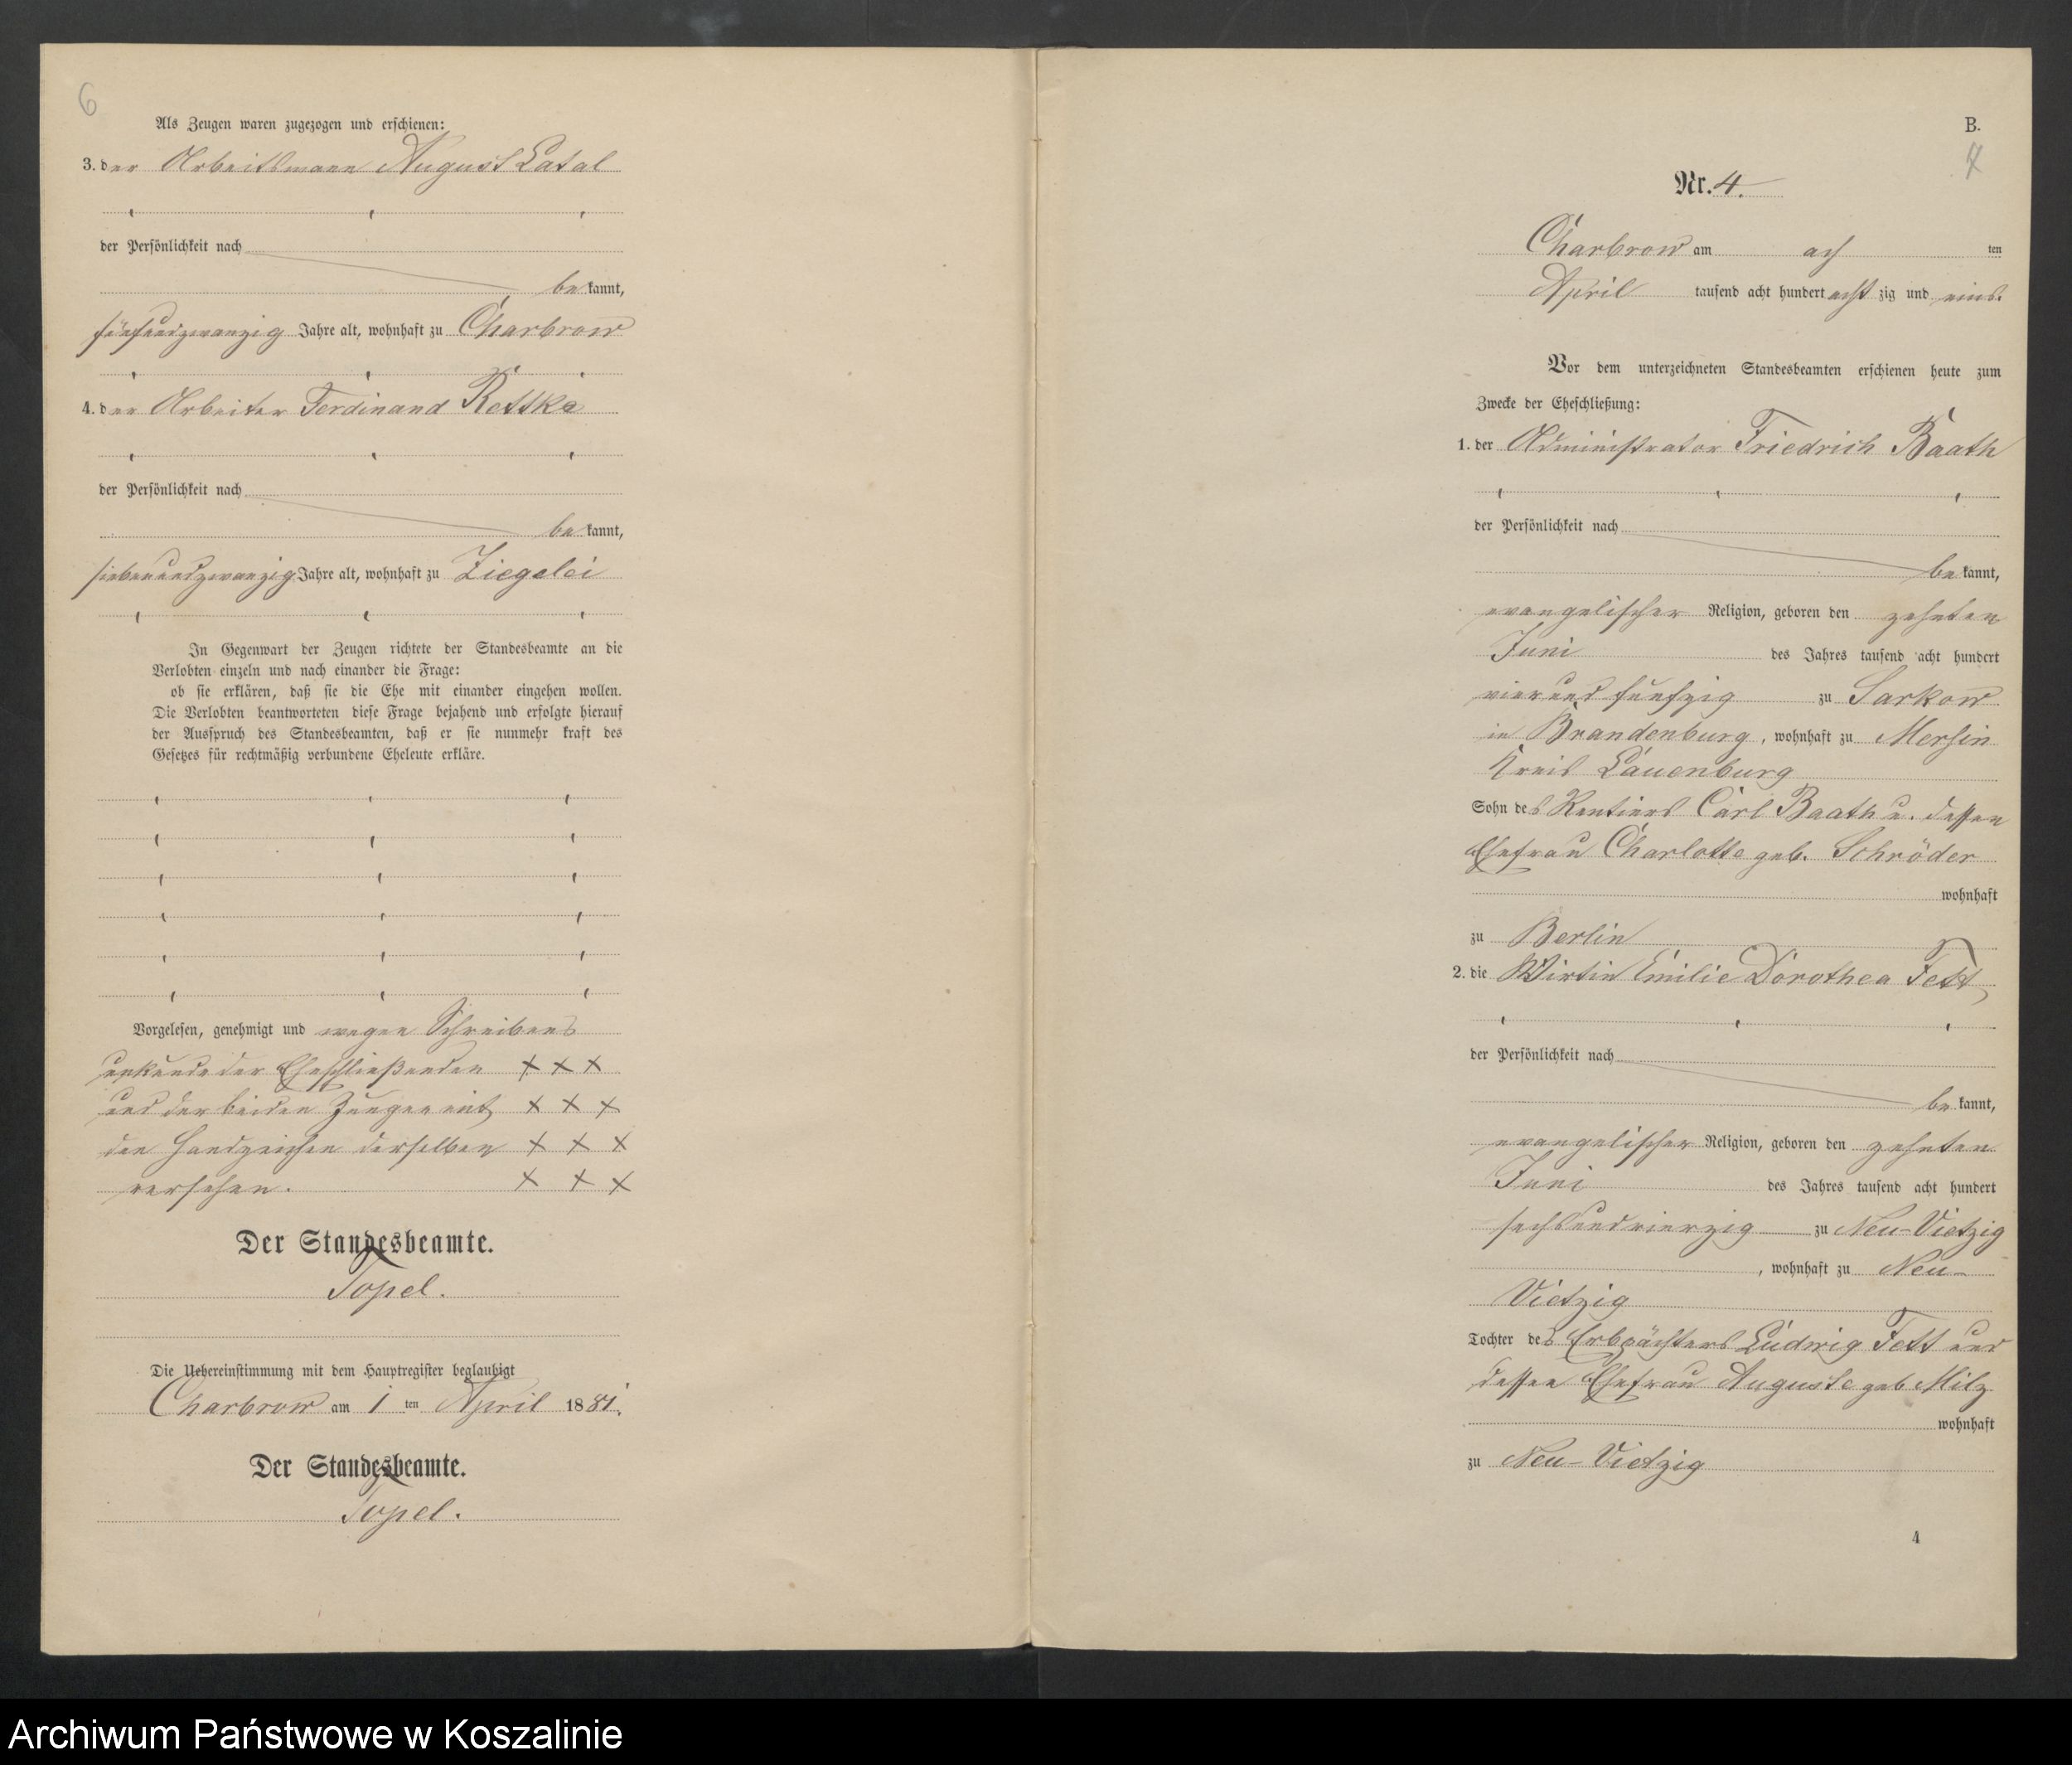 6
Als Zeugen waren zugezogen und erschienen:
3. der Arbeitsmann August Latal
der Persönlichkeit nach
bekannt,
fünfundzwanzig Jahre alt, wohnhaft zu Charbrow
4. der Arbeiter Ferdinand Rettke
der Persönlichkeit nach
bekannt,
siebenundzwanzig Jahre alt, wohnhaft zu Ziegelei
In Gegenwart der Zeugen richtete der Standesbeamte an die
Verlobten einzeln und nach einander die Frage:
ob sie erklären, daß sie die Ehe mit einander eingehen wollen.
Die Verlobten beantworteten diese Frage bejahend und erfolgte hierauf
der Ausspruch des Standesbeamten, daß er sie nunmehr kraft des
Gesetzes für rechtmäßig verbundene Eheleute erkläre.
Vorgelesen, genehmigt und wegen Schreibens
unkunde der Eheschließenden + + +
und der beiden Zeugen mit + + +
den Handzeichen derselben + + +
versehen. + + +
Der Standesbeamte.
Topel.
Die Uebereinstimmung mit dem Hauptregister beglaubigt
Charbrow am 1 ten April 1881.
Der Standesbeamte.
Topel.
B.
7
Nr. 4.
Charbrow am ach ten
April tausend acht hundert acht zig und eins.
Vor dem unterzeichneten Standesbeamten erschienen heute zum
Zwecke der Eheschließung:
1. der Administrator Friedrich Baath
der Persönlichkeit nach
bekannt,
evangelischer Religion, geboren den zehnten
Juni des Jahres tausend acht hundert
vierund fünfzig zu Sarkow
in Brandenburg, wohnhaft zu Mersin
Kreis Lauenburg
Sohn des Rentiers Carl Baath u. dessen
Ehefrau Charlotte geb. Schröder
wohnhaft
zu Berlin
2. die Wirtin Emilie Dorothea Fett,
der Persönlichkeit nach
bekannt,
evangelischer Religion, geboren den zehnten
Juni des Jahres tausend acht hundert
sechsundvierzig zu Neu-Vietzig
, wohnhaft zu Neu-
Vietzig
Tochter des Erbpächters Ludwig Fett und
dessen Ehefrau Auguste geb Milz
wohnhaft
zu Neu-Vietzig
4
Archiwum Państwowe w Koszalinie